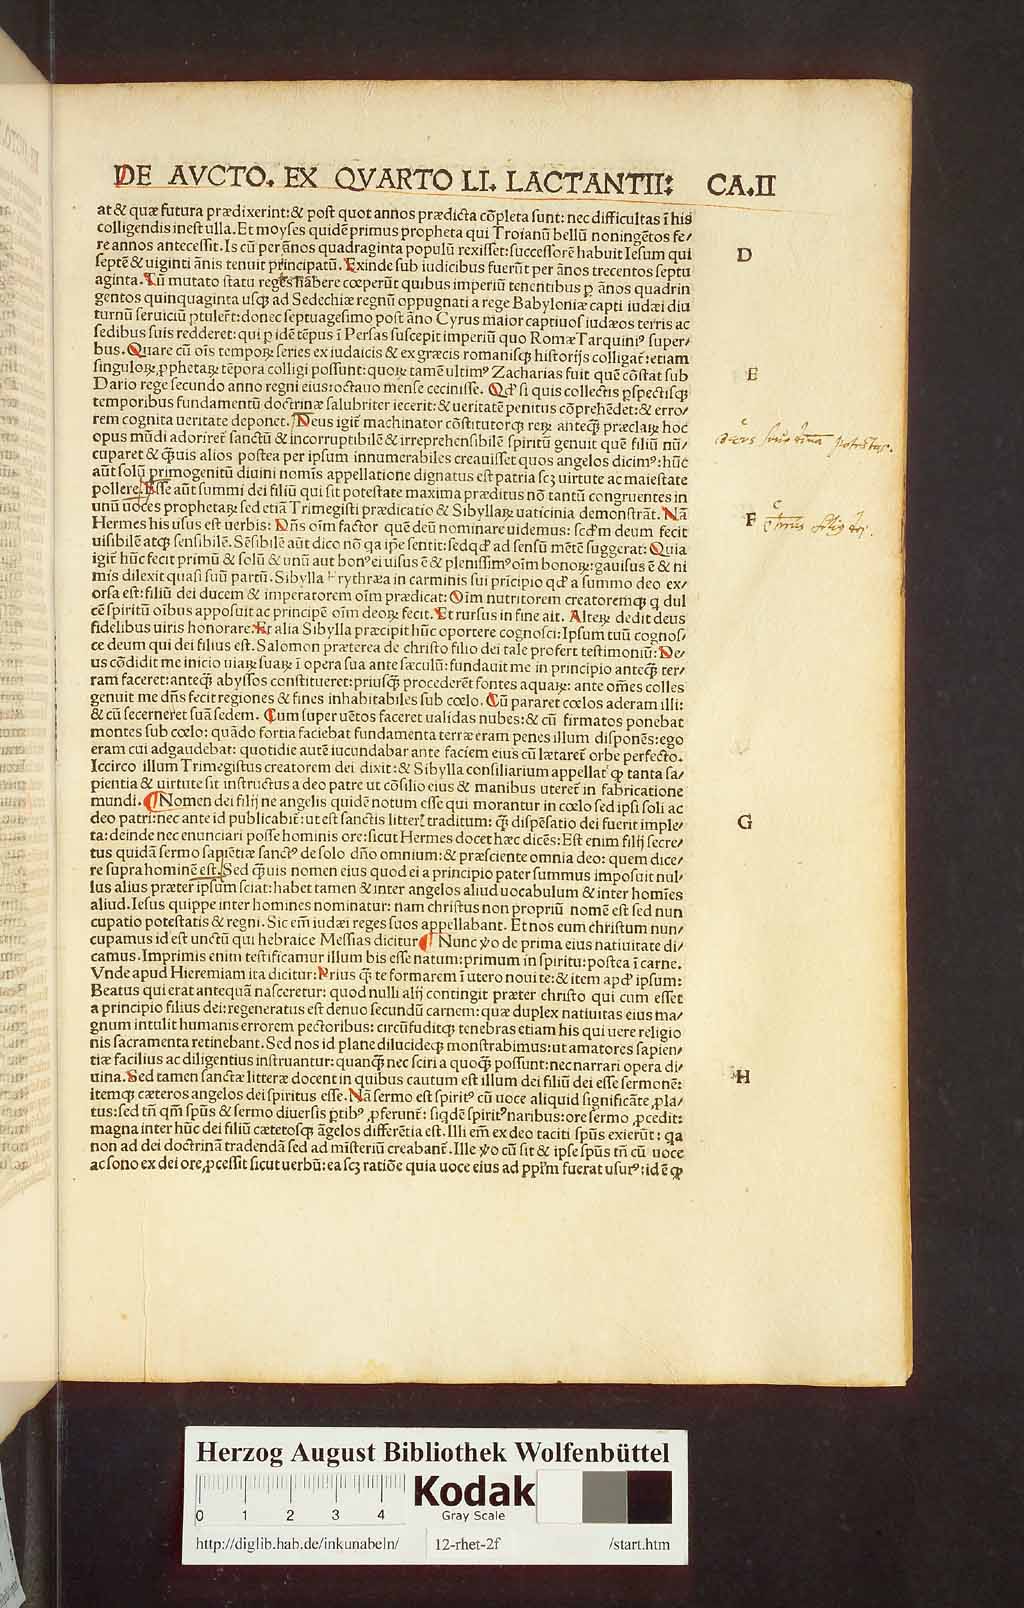 DE AVCTO. EX QVARTO LI. LACTANTII: CA.II
at & quæ futura prædixerint: & post quot annos prædicta cõpleta sunt: nec difficultas ĩ his
colligendis inest ulla. Et moyses quidẽ primus propheta qui Troianũ bellũ noningẽtos fe/
re annos antecessit. Is cũ per ãnos quadraginta populũ rexisset: successorẽ habuit Iesum qui
septẽ & uiginti ãnis tenuit principatũ. Exinde sub iudicibus fuerũt per ãnos trecentos septu
D
aginta. Tũ mutato statu reges habere cœperũt quibus imperiũ tenentibus ꝑ ãnos quadrin
gentos quinquaginta usqꝫ ad Sedechiæ regnũ oppugnati a rege Babyloniæ capti iudæi diu
turnũ seruiciũ ptuler̃t: donec septuagesimo post ãno Cyrus maior captiuos iudæos terris ac
sedibus suis redderet: qui ꝑ idẽ tẽpus ĩ Persas suscepit imperiũ quo Romæ Tarquiniꝰ super/
bus. Quare cũ oĩs temporꝝ series ex iudaicis & ex græcis romanisqꝫ historijs colligat̃: etiam
singulorꝝ ꝓphetarꝝ tẽpora colligi possunt: quorꝝ tamẽ ultimꝰ Zacharias fuit quẽ cõstat sub
E
Dario rege secundo anno regni eius: octauo mense cecinisse. Qd̛ si quis collectis ꝑspectisqꝫ
temporibus fundamentũ doctrinæ salubriter iecerit: & ueritatẽ penitus cõprehẽdet: & erro/
rem cognita ueritate deponet. Deus igit̃ machinator cõstitutorqꝫ rerꝝ anteqꝫ̃ præclarꝝ hoc
opus mũdi adoriret̃ sanctũ & incorruptibilẽ & irreprehensibilẽ spiritũ genuit quẽ filiũ nũ/
cuparet & qꝫ̃uis alios postea per ipsum innumerabiles creauisset quos angelos dicimꝰ: hũc
aũt solũ primogenitũ diuini nomĩs appellatione dignatus est patria scꝫ uirtute ac maiestate
pollere. Esse aũt summi dei filiũ qui sit potestate maxima præditus nõ tantũ congruentes in
unũ uoces prophetarꝝ sed etiã Trimegisti prædicatio & Sibyllarꝝ uaticinia demonstrãt. Nã
Hermes his usus est uerbis: Dñs oĩm factor quẽ deũ nominare uidemus: secd̛m deum fecit
F
uisibilẽ atqꝫ sensibilẽ. Sẽsibilẽ aũt dico nõ qa ip̃e sentit: sedqd̛ ad sensũ mẽtẽ suggerat: Quia
igit̃ hũc fecit primũ & solũ & unũ aut bonꝰ ei uisus ẽ & plenissimꝰ oĩm bonorꝝ: gauisus ẽ & ni
mis dilexit quasi suũ partũ. Sibylla Erythræa in carminis sui prĩcipio qd̛ a summo deo ex/
orsa est: filiũ dei ducem & imperatorem oĩm prædicat: Oĩm nutritorem creatoremqꝫ q dul
cẽ spiritũ oĩbus apposuit ac principẽ oĩm deorꝝ fecit. Et rursus in fine ait. Alterꝝ dedit deus
fidelibus uiris honorare. Et alia Sibylla præcipit hũc oportere cognosci: Ipsum tuũ cognos/
ce deum qui dei filius est. Salomon præterea de christo filio dei tale profert testimoniũ: De/
us cõdidit me inicio uiarꝝ suarꝝ ĩ opera sua ante sæculũ: fundauit me in principio anteqꝫ̃ ter/
ram faceret: anteqꝫ̃ abyssos constitueret: priusqꝫ̃ procederẽt fontes aquarꝝ: ante om̃es colles
genuit me dñs fecit regiones & fines inhabitabiles sub cœlo. Cũ pararet cœlos aderam illi:
& cũ secerneret suã sedem. Cum super uẽtos faceret ualidas nubes: & cũ firmatos ponebat
montes sub cœlo: quãdo fortia faciebat fundamenta terræ eram penes illum disponẽs: ego
eram cui adgaudebat: quotidie autẽ iucundabar ante faciem eius cũ lætaret̃ orbe perfecto.
Iccirco illum Trimegistus creatorem dei dixit: & Sibylla consiliarium appellat̃ qꝫ tanta sa/
pientia & uirtute sit instructus a deo patre ut cõsilio eius & manibus uteret̃ in fabricatione
mundi. ¶ Nomen dei filij ne angelis quidẽ notum esse qui morantur in cœlo sed ipsi soli ac
deo patri: nec ante id publicabit̃: ut est sanctis litter̃ traditum: qꝫ̃ dispẽsatio dei fuerit imple/
G
ta: deinde nec enunciari posse hominis ore: sicut Hermes docet hæc dicẽs: Est enim filij secre/
tus quidã sermo sapiẽtiæ sanctꝰ de solo dño omnium: & præsciente omnia deo: quem dice/
re supra hominẽ est. Sed qꝫ̃uis nomen eius quod ei a principio pater summus imposuit nul/
lus alius præter ipsum sciat: habet tamen & inter angelos aliud uocabulum & inter homĩes
aliud. Iesus quippe inter homines nominatur: nam christus non propriũ nomẽ est sed nun
cupatio potestatis & regni. Sic em̃ iudæi reges suos appellabant. Et nos eum christum nun/
cupamus id est unctũ qui hebraice Messias dicitur ¶ Nunc ṽo de prima eius natiuitate di/
camus. Imprimis enim testificamur illum bis esse natum: primum in spiritu: postea ĩ carne.
Vnde apud Hieremiam ita dicitur: Prius qꝫ̃ te formarem ĩ utero noui te: & item apd̛ ipsum:
Beatus qui erat antequã nasceretur: quod nulli alij contingit præter christo qui cum esset
a principio filius dei: regeneratus est denuo secundũ carnem: quæ duplex natiuitas eius ma/
gnum intulit humanis errorem pectoribus: circũfuditqꝫ tenebras etiam his qui uere religio
nis sacramenta retinebant. Sed nos id plane dilucideqꝫ monstrabimus: ut amatores sapien/
tiæ facilius ac diligentius instruantur: quanqꝫ̃ nec sciri a quoqꝫ̃ possunt: nec narrari opera di/
uina. Sed tamen sanctæ litteræ docent in quibus cautum est illum dei filiũ dei esse sermonẽ:
H
itemqꝫ cæteros angelos dei spiritus esse. Nã sermo est spiritꝰ cũ uoce aliquid significãte ꝓla/
tus: sed tñ qm̃ sp̃us & sermo diuersis ꝑtibꝰ ꝓferunt̃: siqdẽ spiritꝰ naribus: ore sermo ꝓcedit:
magna inter hũc dei filiũ cætetosqꝫ ãgelos differẽtia est. Illi em̃ ex deo taciti sp̃us exierũt: qa
non ad dei doctrinã tradendã sed ad mĩsteriũ creabant̃. Ille ṽo cũ sit & ipse sp̃us tñ cũ uoce
ac sono ex dei ore ꝓcessit sicut uerbũ: ea scꝫ ratiõe quia uoce eius ad pp̃lm fuerat usurꝰ: id ẽ qꝫ
Herzog August Bibliothek Wolfenbüttel
0 1 2 3 4
Kodak
Gray Scale
http://diglib.hab.de/inkunabeln/ 12-rhet-2f /start.htm